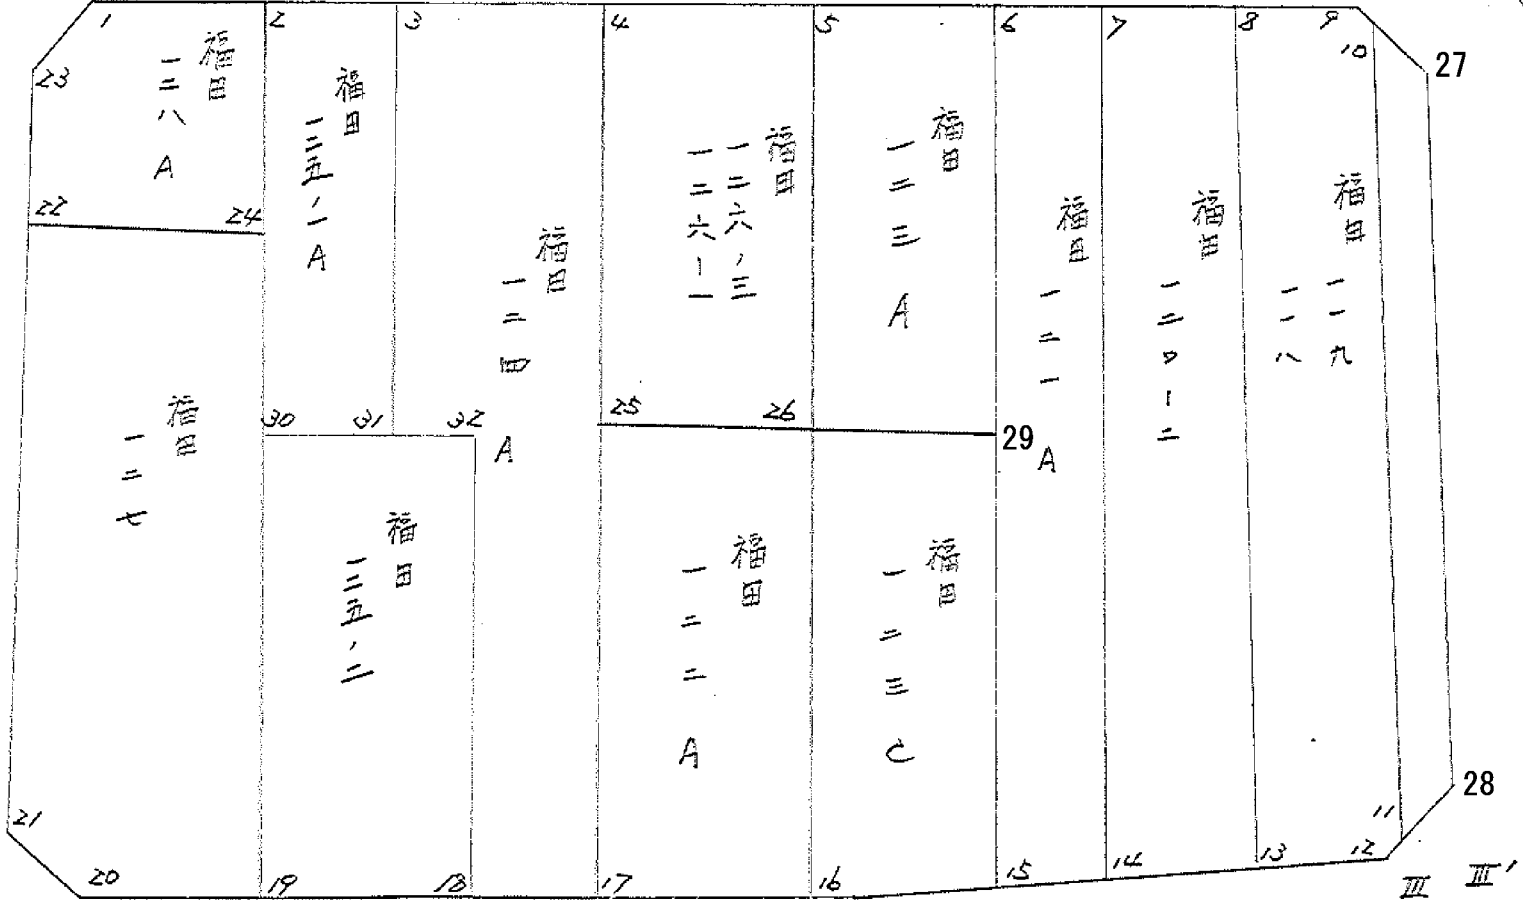 1
2
3
4
5
6
7
8
9
10
27
23
福田
一二八 A
福田
一二五ノ一 A
22
24
福田
一二四 A
福田
一二六ノ三
一二六ー一
福田
一二三 A
福田
一二一 A
福田
一二〇ー二
福田
一一九
一一八
30
31
32
25
26
29
福田
一二七
福田
一二五ノ二
福田
一二二 A
福田
一二三 C
28
21
20
19
18
17
16
15
14
13
12
11
III
III'